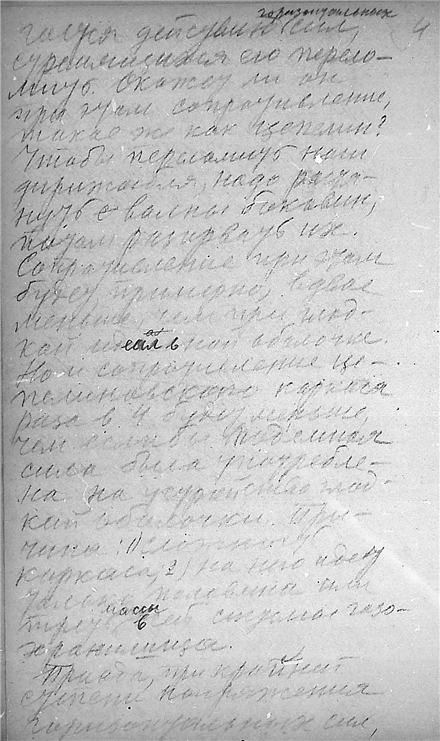 горизонтальных
4
гаться действию сил,
стремящихся его перело-
мить. Окажет ли он
при этом сопротивление,
такое же как цепелин?
Чтобы переломить наш
дирижабль, надо растя-
нуть волны боковин,
потом разорвать их.
Сопротивление при этом
будет, примерно, вдвое
меньше, чем при глад-
кой идеальной оболочке.
Но и сопротивление це-
пелиновского каркаса
раза в 4 будет меньше,
чем если бы подъемная
сила была употребле-
на на устройство глад-
кой оболочки. При-
чина: 1) сложность
каркаса, 2) на него идет
только половина или
треть всей массы газо-
хранилища.
Правда, при крайней
степени напряжения
горизонтальных сил,